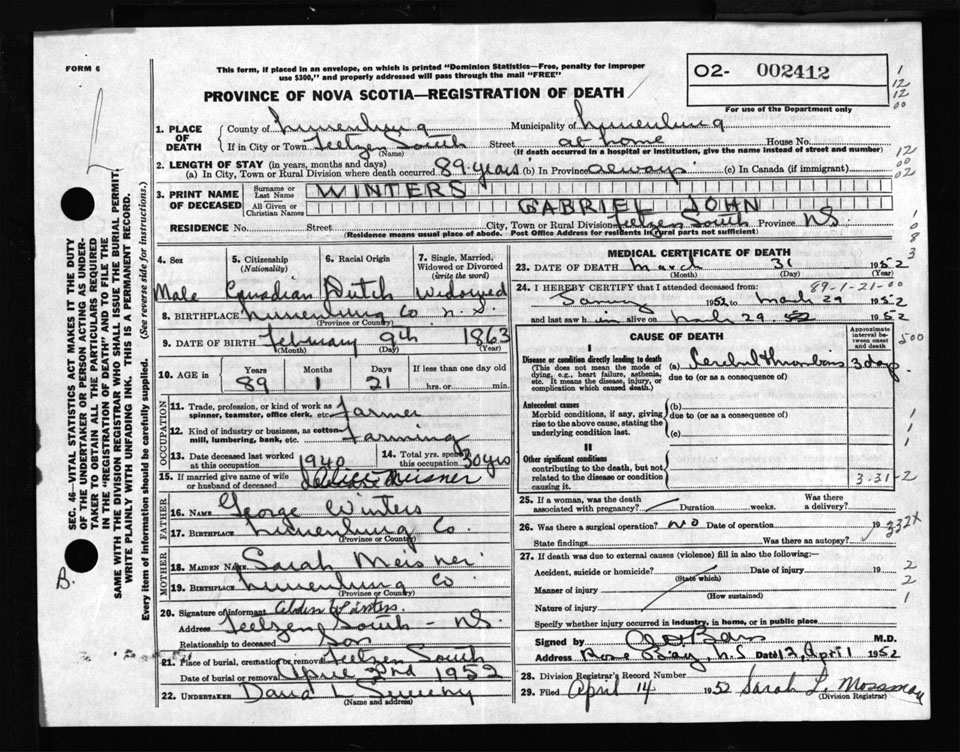 FORM 6
This form, if placed in an envelope, on which is printed "Dominion Statistics—Free, penalty for improper
use $300," and properly addressed will pass through the mail "FREE"
O2- 002412
For use of the Department only
PROVINCE OF NOVA SCOTIA—REGISTRATION OF DEATH
SEC. 46—VITAL STATISTICS ACT MAKES IT THE DUTY
OF THE UNDERTAKER OR PERSON ACTING AS UNDER-
TAKER TO OBTAIN ALL THE PARTICULARS REQUIRED
IN THE "REGISTRATION OF DEATH" AND TO FILE THE
SAME WITH THE DIVISION REGISTRAR WHO SHALL ISSUE THE BURIAL PERMIT.
WRITE PLAINLY WITH UNFADING INK. THIS IS A PERMANENT RECORD.
Every item of information should be carefully supplied. (See reverse side for instructions.)
B.
1. PLACE OF DEATH County of Lunenburg Municipality of Lunenburg
If in City or Town Feltzen South Street at home House No.
(Name) (If death occurred in a hospital or institution, give the name instead of street and number)
2. LENGTH OF STAY (in years, months and days)
(a) In City, Town or Rural Division where death occurred 89 years (b) In Province always (c) In Canada (if immigrant)
3. PRINT NAME OF DECEASED Surname or Last Name WINTERS
All Given or Christian Names GABRIEL JOHN
RESIDENCE No. Street City, Town or Rural Division Feltzen South Province N.S.
(Residence means usual place of abode. Post Office Address for residents in rural parts not sufficient)
4. Sex 5. Citizenship (Nationality) 6. Racial Origin 7. Single, Married, Widowed or Divorced (write the word)
Male Canadian Dutch Widowed
8. BIRTHPLACE Lunenburg Co N.S.
(Province or Country)
9. DATE OF BIRTH February 9th 1863
(Month) (Day) (Year)
10. AGE in Years Months Days If less than one day old
89 1 21 hrs. or min.
OCCUPATION
11. Trade, profession, or kind of work as spinner, teamster, office clerk, etc. Farmer
12. Kind of industry or business, as cotton mill, lumbering, bank, etc. Farming
13. Date deceased last worked at this occupation 1940 14. Total yrs. spent in this occupation 50 yrs
15. If married give name of wife or husband of deceased Meisner
FATHER
16. NAME George Winters
17. BIRTHPLACE Lunenburg Co.
(Province or Country)
MOTHER
18. MAIDEN NAME Sarah Meisner
19. BIRTHPLACE Lunenburg Co
(Province or Country)
20. Signature of informant Alden Winters.
Address Feltzen South - N.S.
Relationship to deceased Son
21. Place of burial, cremation or removal Feltzen South
Date of burial or removal April 2nd 1952
22. UNDERTAKER David L Sweeny
(Name and address)
MEDICAL CERTIFICATE OF DEATH
23. DATE OF DEATH March 31 1952
(Month) (Day) (Year)
24. I HEREBY CERTIFY that I attended deceased from: 89-1-21-00
1952 to March 29 1952
and last saw him alive on March 29 52
CAUSE OF DEATH
Approximate interval between onset and death
I
Disease or condition directly leading to death
(This does not mean the mode of dying, e.g., heart failure, asthenia, etc. It means the disease, injury, or complication which caused death.)
(a) Cerebral thrombosis 3 days
due to (or as a consequence of)
Antecedent causes
Morbid conditions, if any, giving rise to the above cause, stating the underlying condition last.
(b)
due to (or as a consequence of)
(c)
II
Other significant conditions
contributing to the death, but not related to the disease or condition causing it.
3-31-2
25. If a woman, was the death associated with pregnancy? Duration weeks. Was there a delivery?
26. Was there surgical operation? no Date of operation 19 332X
State findings Was there an autopsy?
27. If death was due to external causes (violence) fill in also the following:
Accident, suicide or homicide? Date of injury 19
(State which)
Manner of injury
(How sustained)
Nature of injury
Specify whether injury occurred in industry, in home, or in public place
Signed by M.D.
Address Rose Bay, N.S Date 12 April 1952
28. Division Registrar's Record Number
29. Filed April 14 1952 Sarah L. Mossman
(Division Registrar)